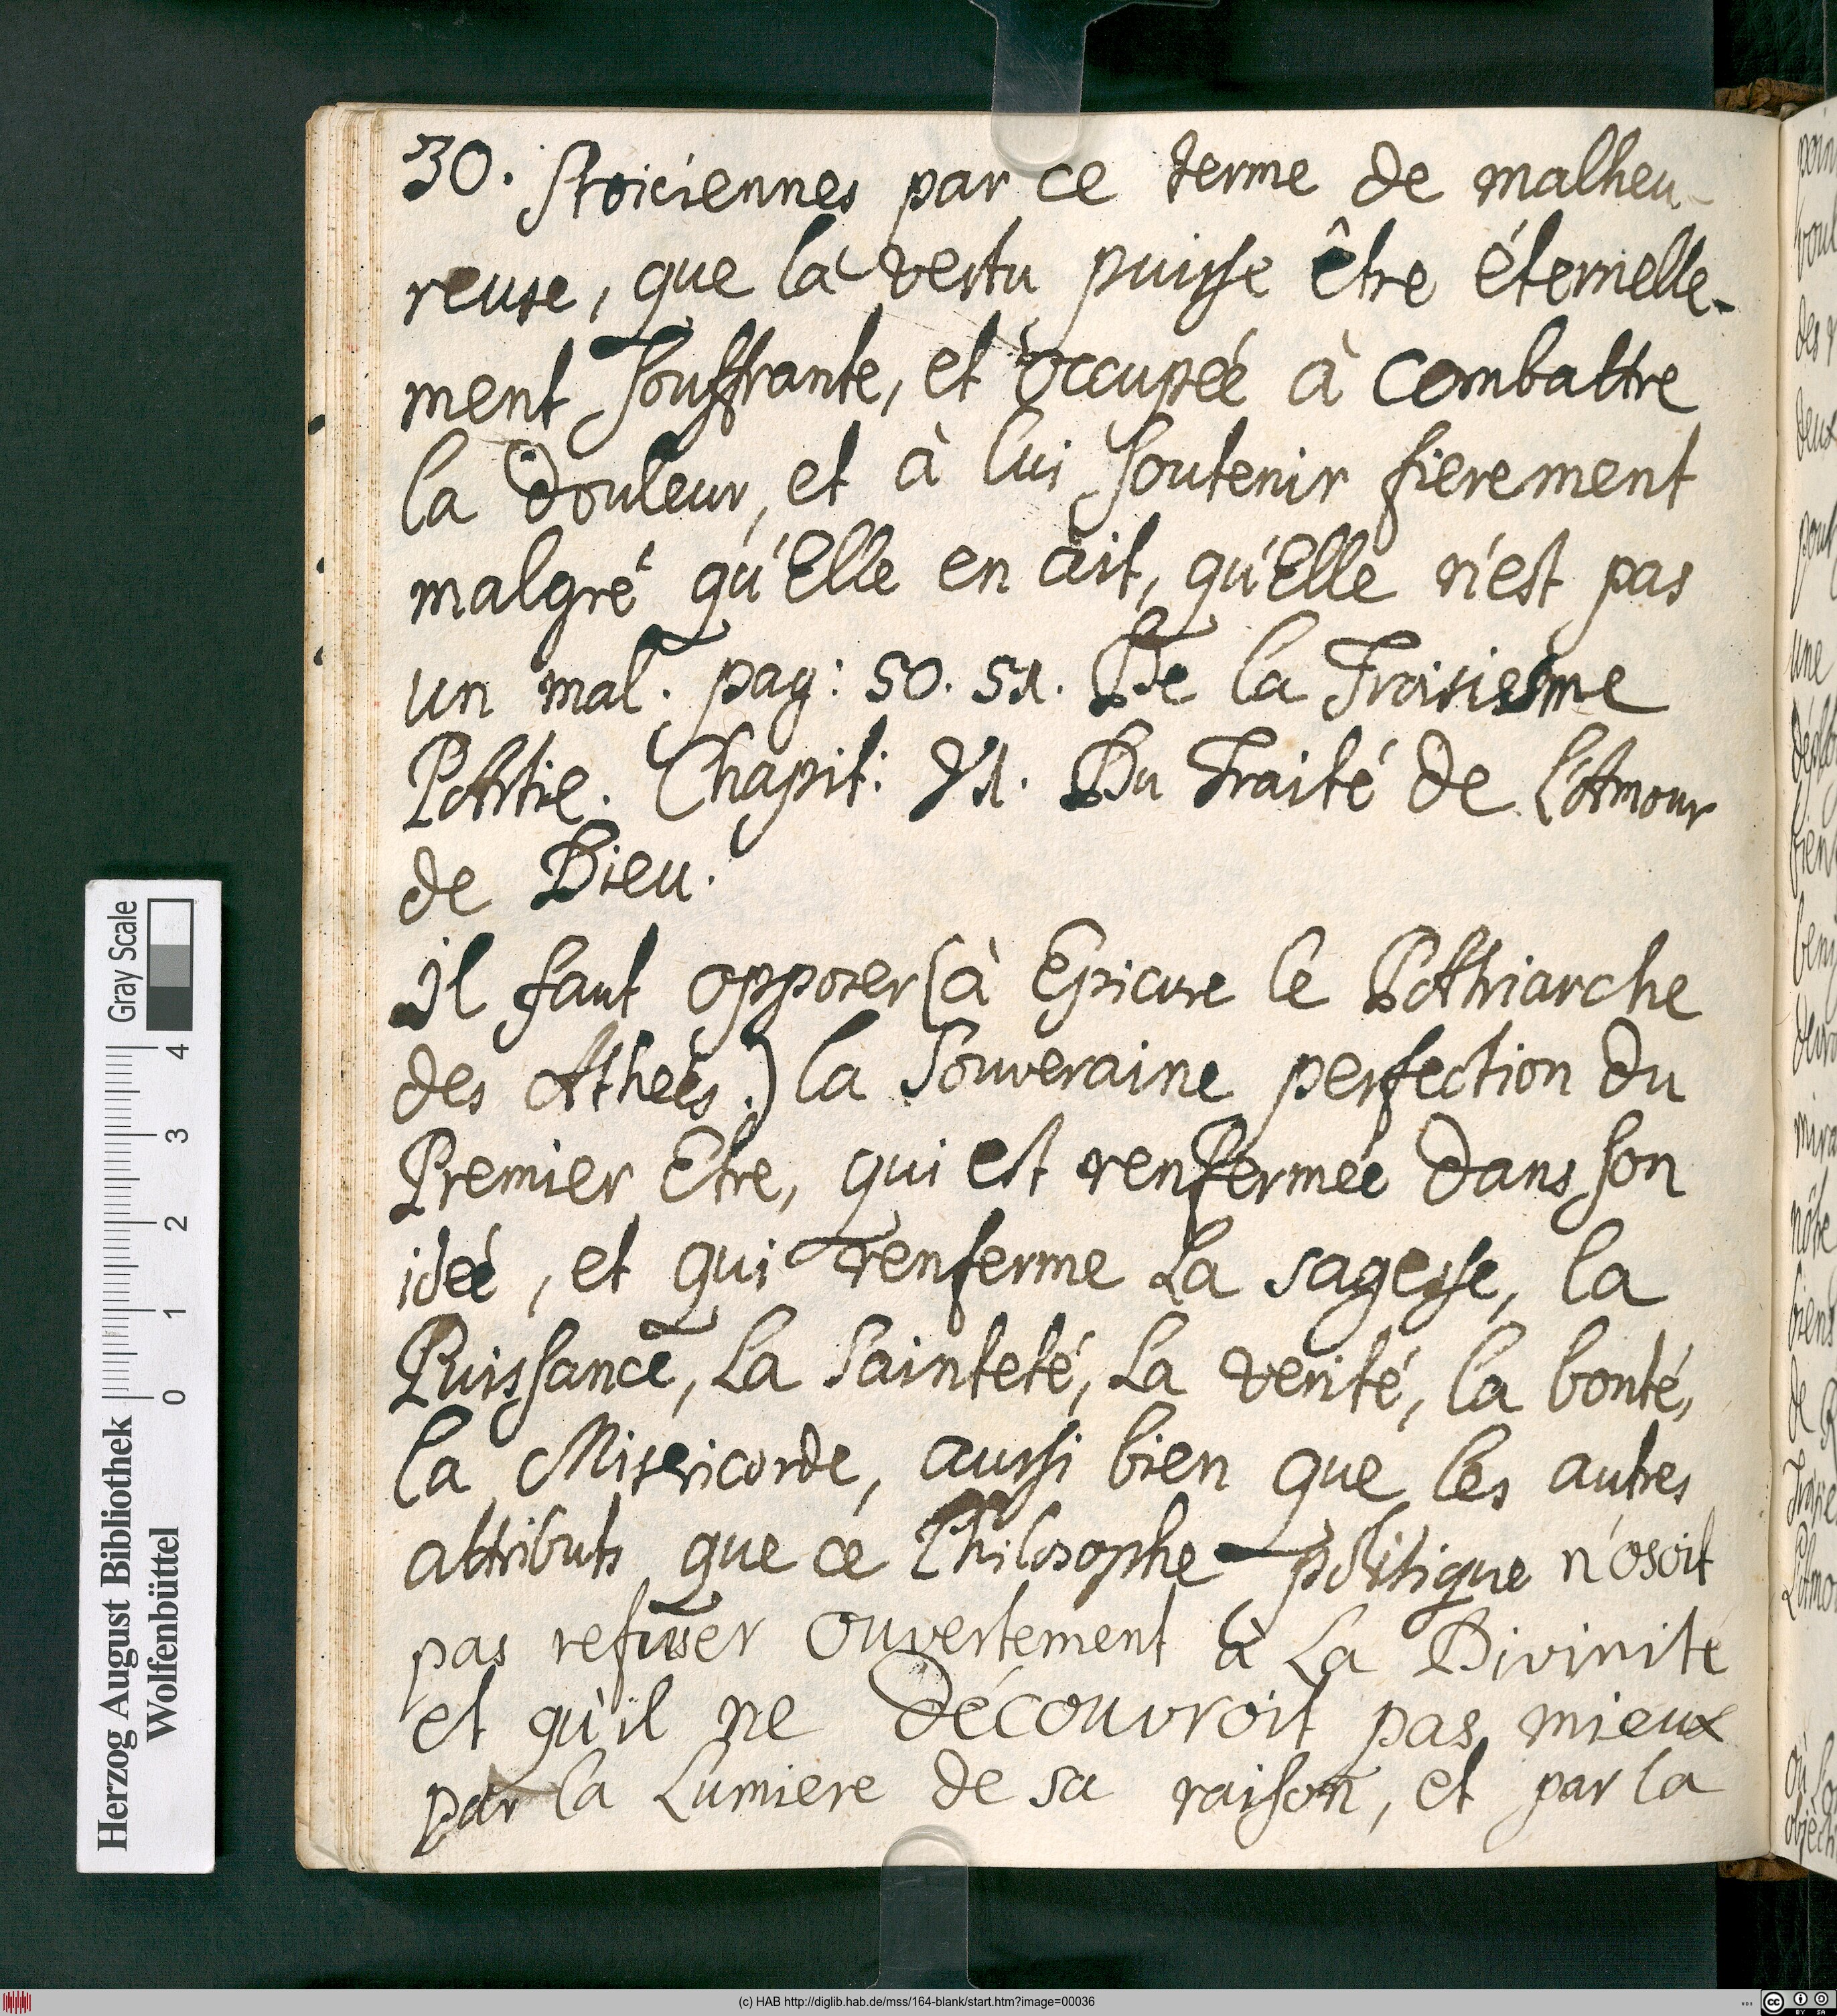 30. Stoiciennes par ce terme de malheu-
reuse, que la vertu puisse être éternelle-
ment souffrante, et occupeé à combattre
la douleur, et à lui soutenir fierement
malgré qu'Elle en ait, qu'Elle n'est pas
un mal. pag: 50. 51. De la Troisiesme
PArtie. Chapit: VI. Du Traité de l'Amour
de Dieu.
Il faut opposer (à Epicure le PAtriarche
des Atheés.) la Souveraine perfection du
Premier Etre, qui est renfermeé dans son
ideé, et qui renferme La sagesse, la
Puissance, La Sainteté, La verité, la bonté,
la Misericorde, aussi bien que les autres
attributs que ce Philosophe politique n'osoit
pas refuser ouvertement à La Divinité
et qu'il ne découvroit pas mieux
par la Lumiere de sa raison, et par la
Herzog August Bibliothek
Wolfenbüttel
0 1 2 3 4
Gray Scale
(c) HAB http://diglib.hab.de/mss/164-blank/start.htm?image=00036